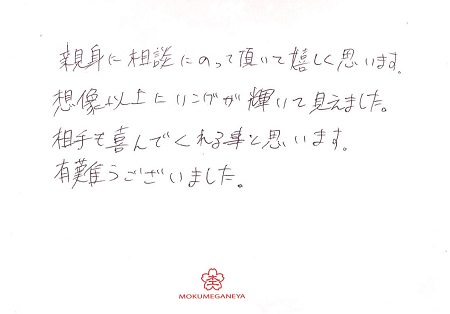 親身に相談にのって頂いて嬉しく思います。
想像以上にリングが輝いて見えました。
相手も喜んでくれる事と思います。
有難うございました。
MOKUMEGANEYA